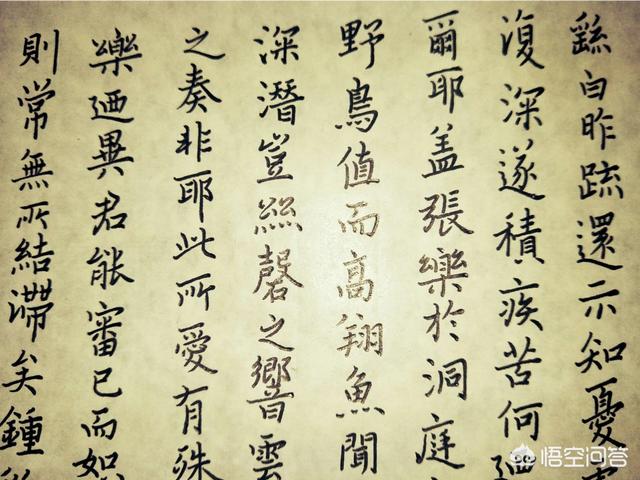 繇白昨疏還示知憂
復深遂積疾苦何迺
爾耶盖張樂於洞庭
野鳥值而高翔魚聞
深潛豈絲磬之響雲
之奏非耶此所愛有殊
樂迺異君能審已而恕
則常無所結滯矣鍾
悟空问答